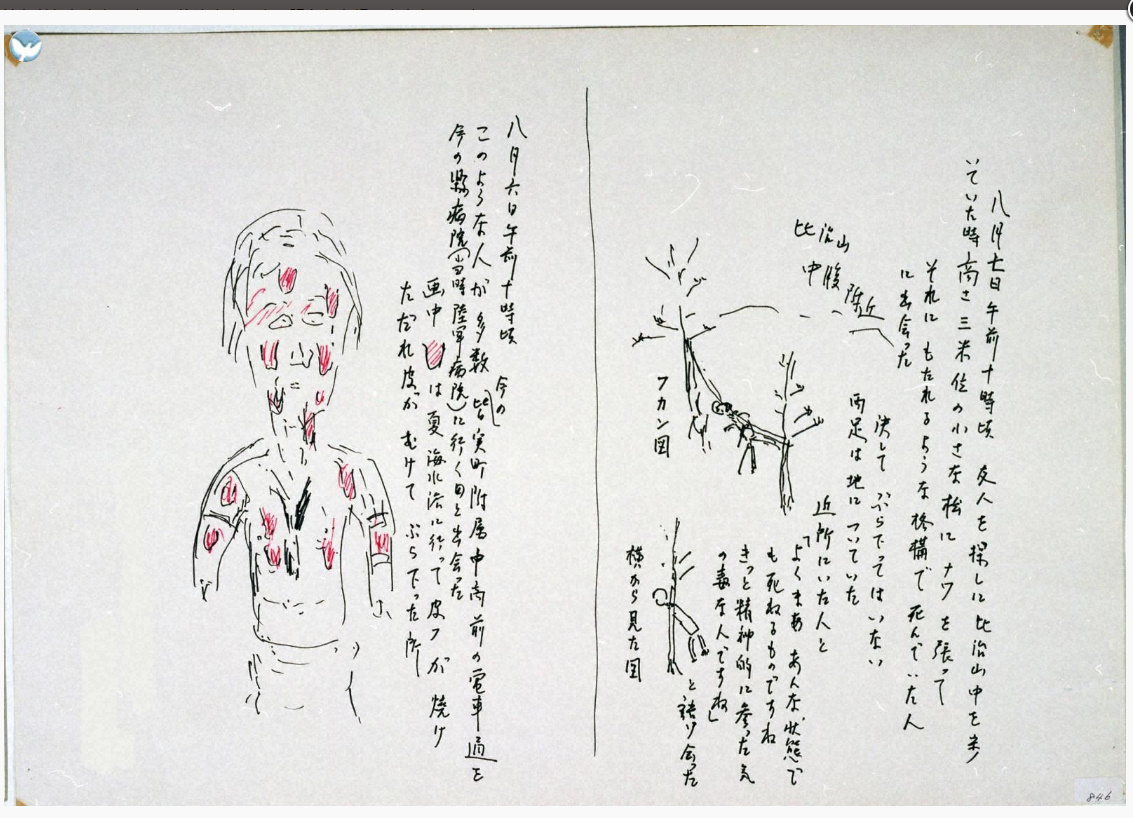 八月七日午前十時頃 友人を探しに比治山中を歩
いていた時高さ三米位の小さな松にナワを張って
それにもたれるような格構で死んでいた人
に出会った
決してぶら下ってはいない
両足は地についていた
近所にいた人と
「よくまああんな状態で
も死ねるものですね
きっと精神的に参った気
の毒な人ですね」
と語り合った
比治山
中腹附近
フカン図
横から見た図
八月六日午前十時頃
このような人が多数 今の「皆実町附属中高前の電車通を
今の県病院(当時陸軍病院)に行く由と出会った
画中 は夏海水浴に行って皮フが焼け
ただれ皮がむけてぶら下った所
846